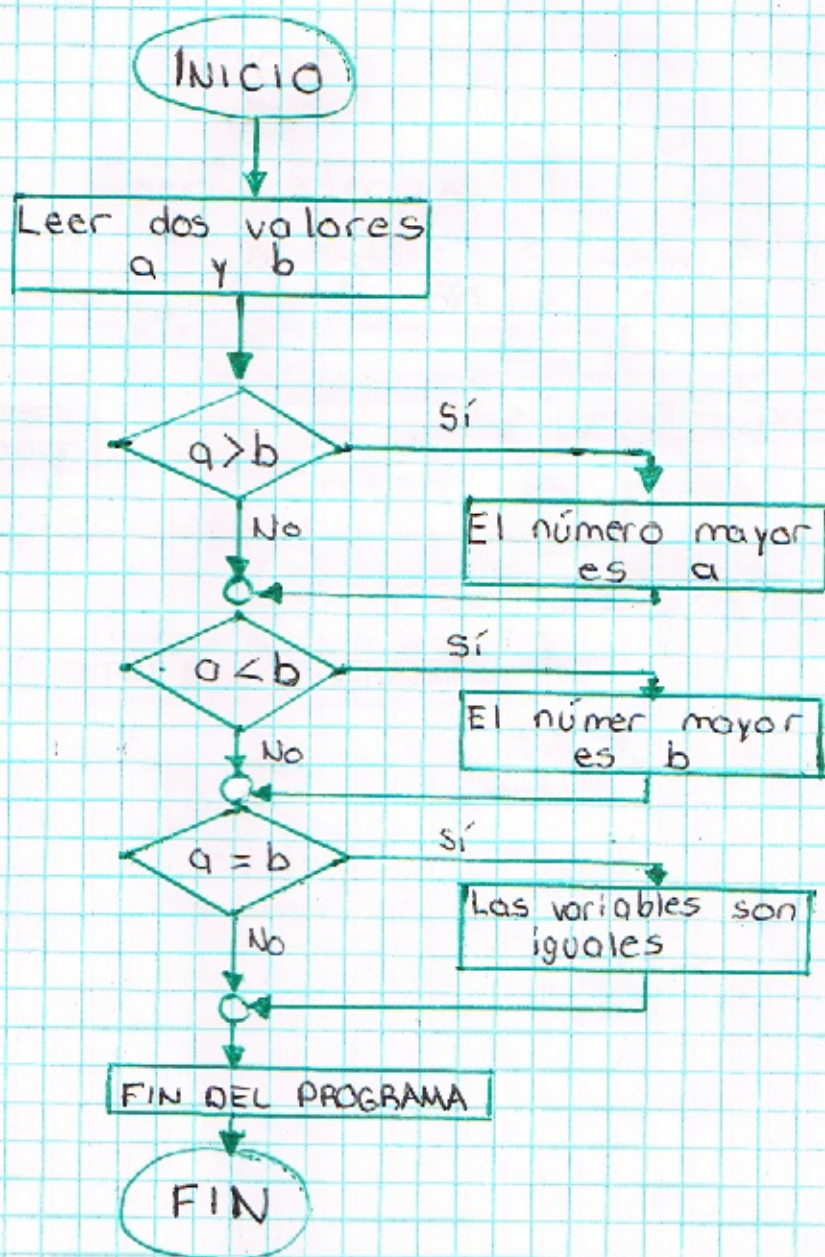 INICIO
Leer dos valores
a y b
a>b
Sí
No
El número mayor
es a
a<b
Sí
No
El númer mayor
es b
a = b
Sí
No
Las variables son
iguales
FIN DEL PROGRAMA
FIN